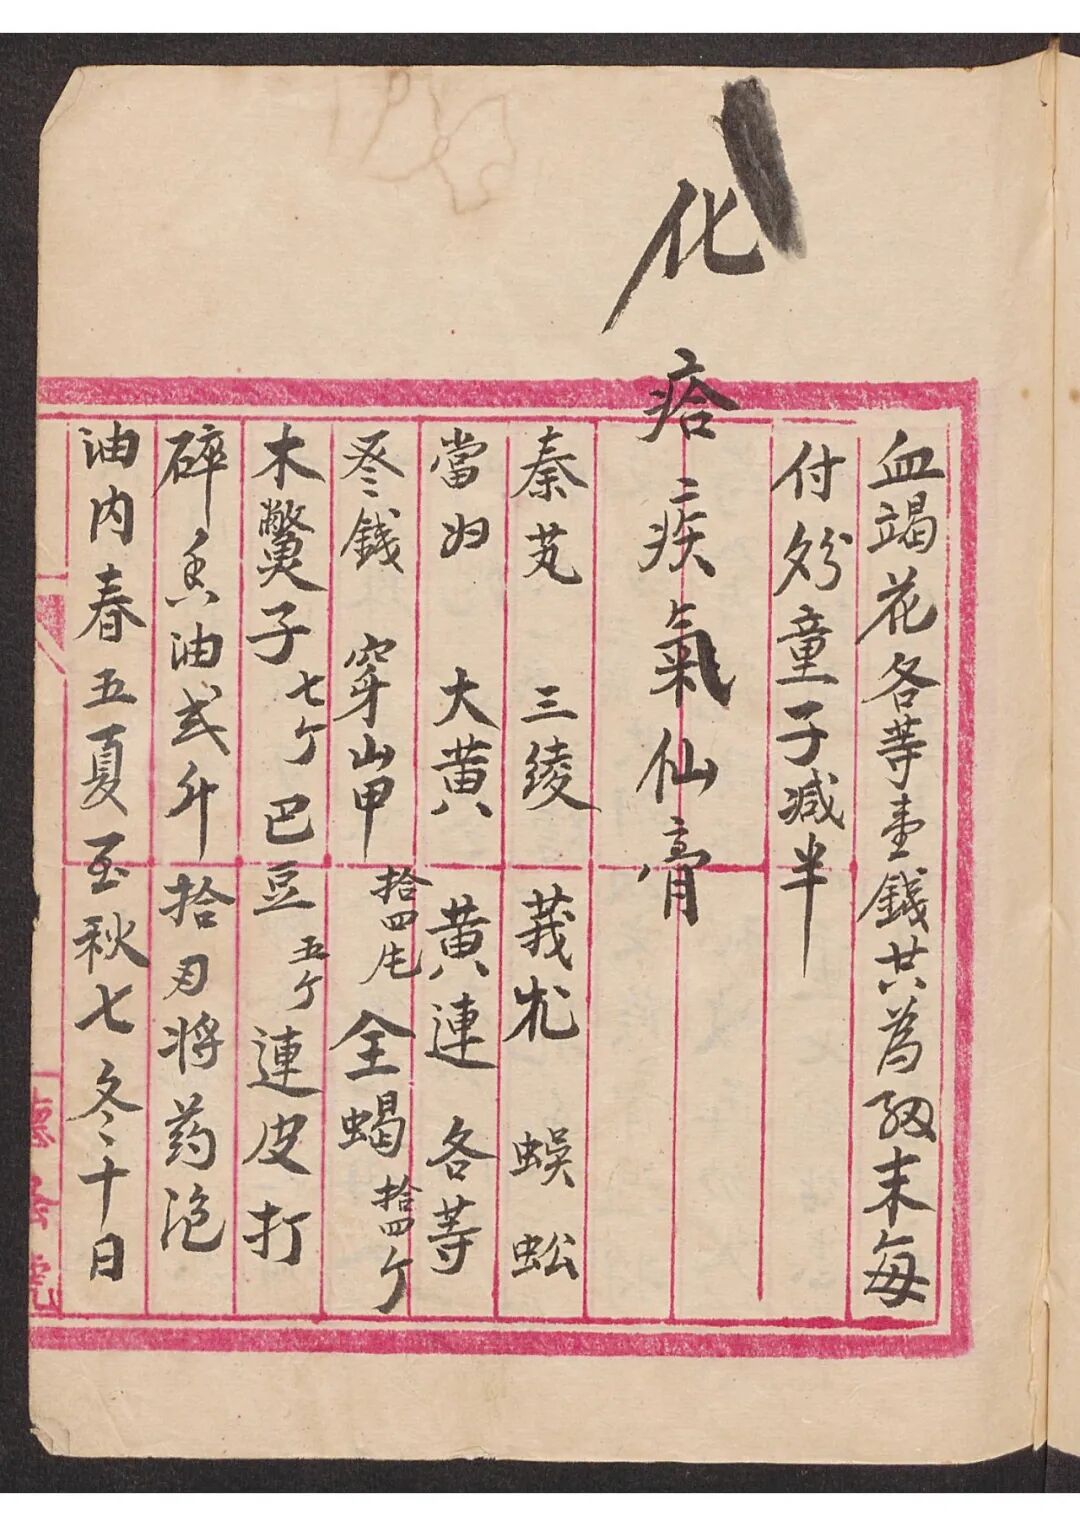 血竭花各等壹錢共為級末每
付分童子减半
化痞疾氣仙膏
秦艽 三綾 莪朮 蜈蚣
當归 大黄 黄連 各等
叁錢 穿山甲 拾四片 全蝎 拾四个
木鱉子 七个 巴豆 五个 連皮打
碎 香油弍斤 拾刃将药泡
油内春五夏至秋七冬十日